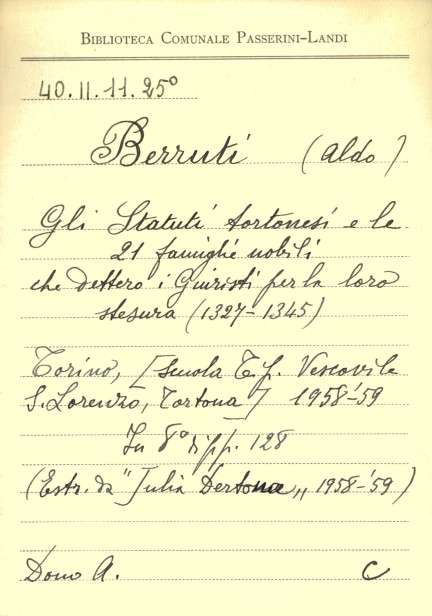 BIBLIOTECA COMUNALE PASSERINI-LANDI
40.II.11.25°
Berruti (Aldo)
Gli Statuti tortonesi e le
21 famighé nobili
che dettero i Giuristi per la loro
stesura (1327-1345)
Torino, [Scuola T.p. Vescovile
S. Lorenzo, Tortona] 1958-'59
In 8° di pp. 128
(Estr. da "Julia Dertona„ 1958-'59)
Dono A. C